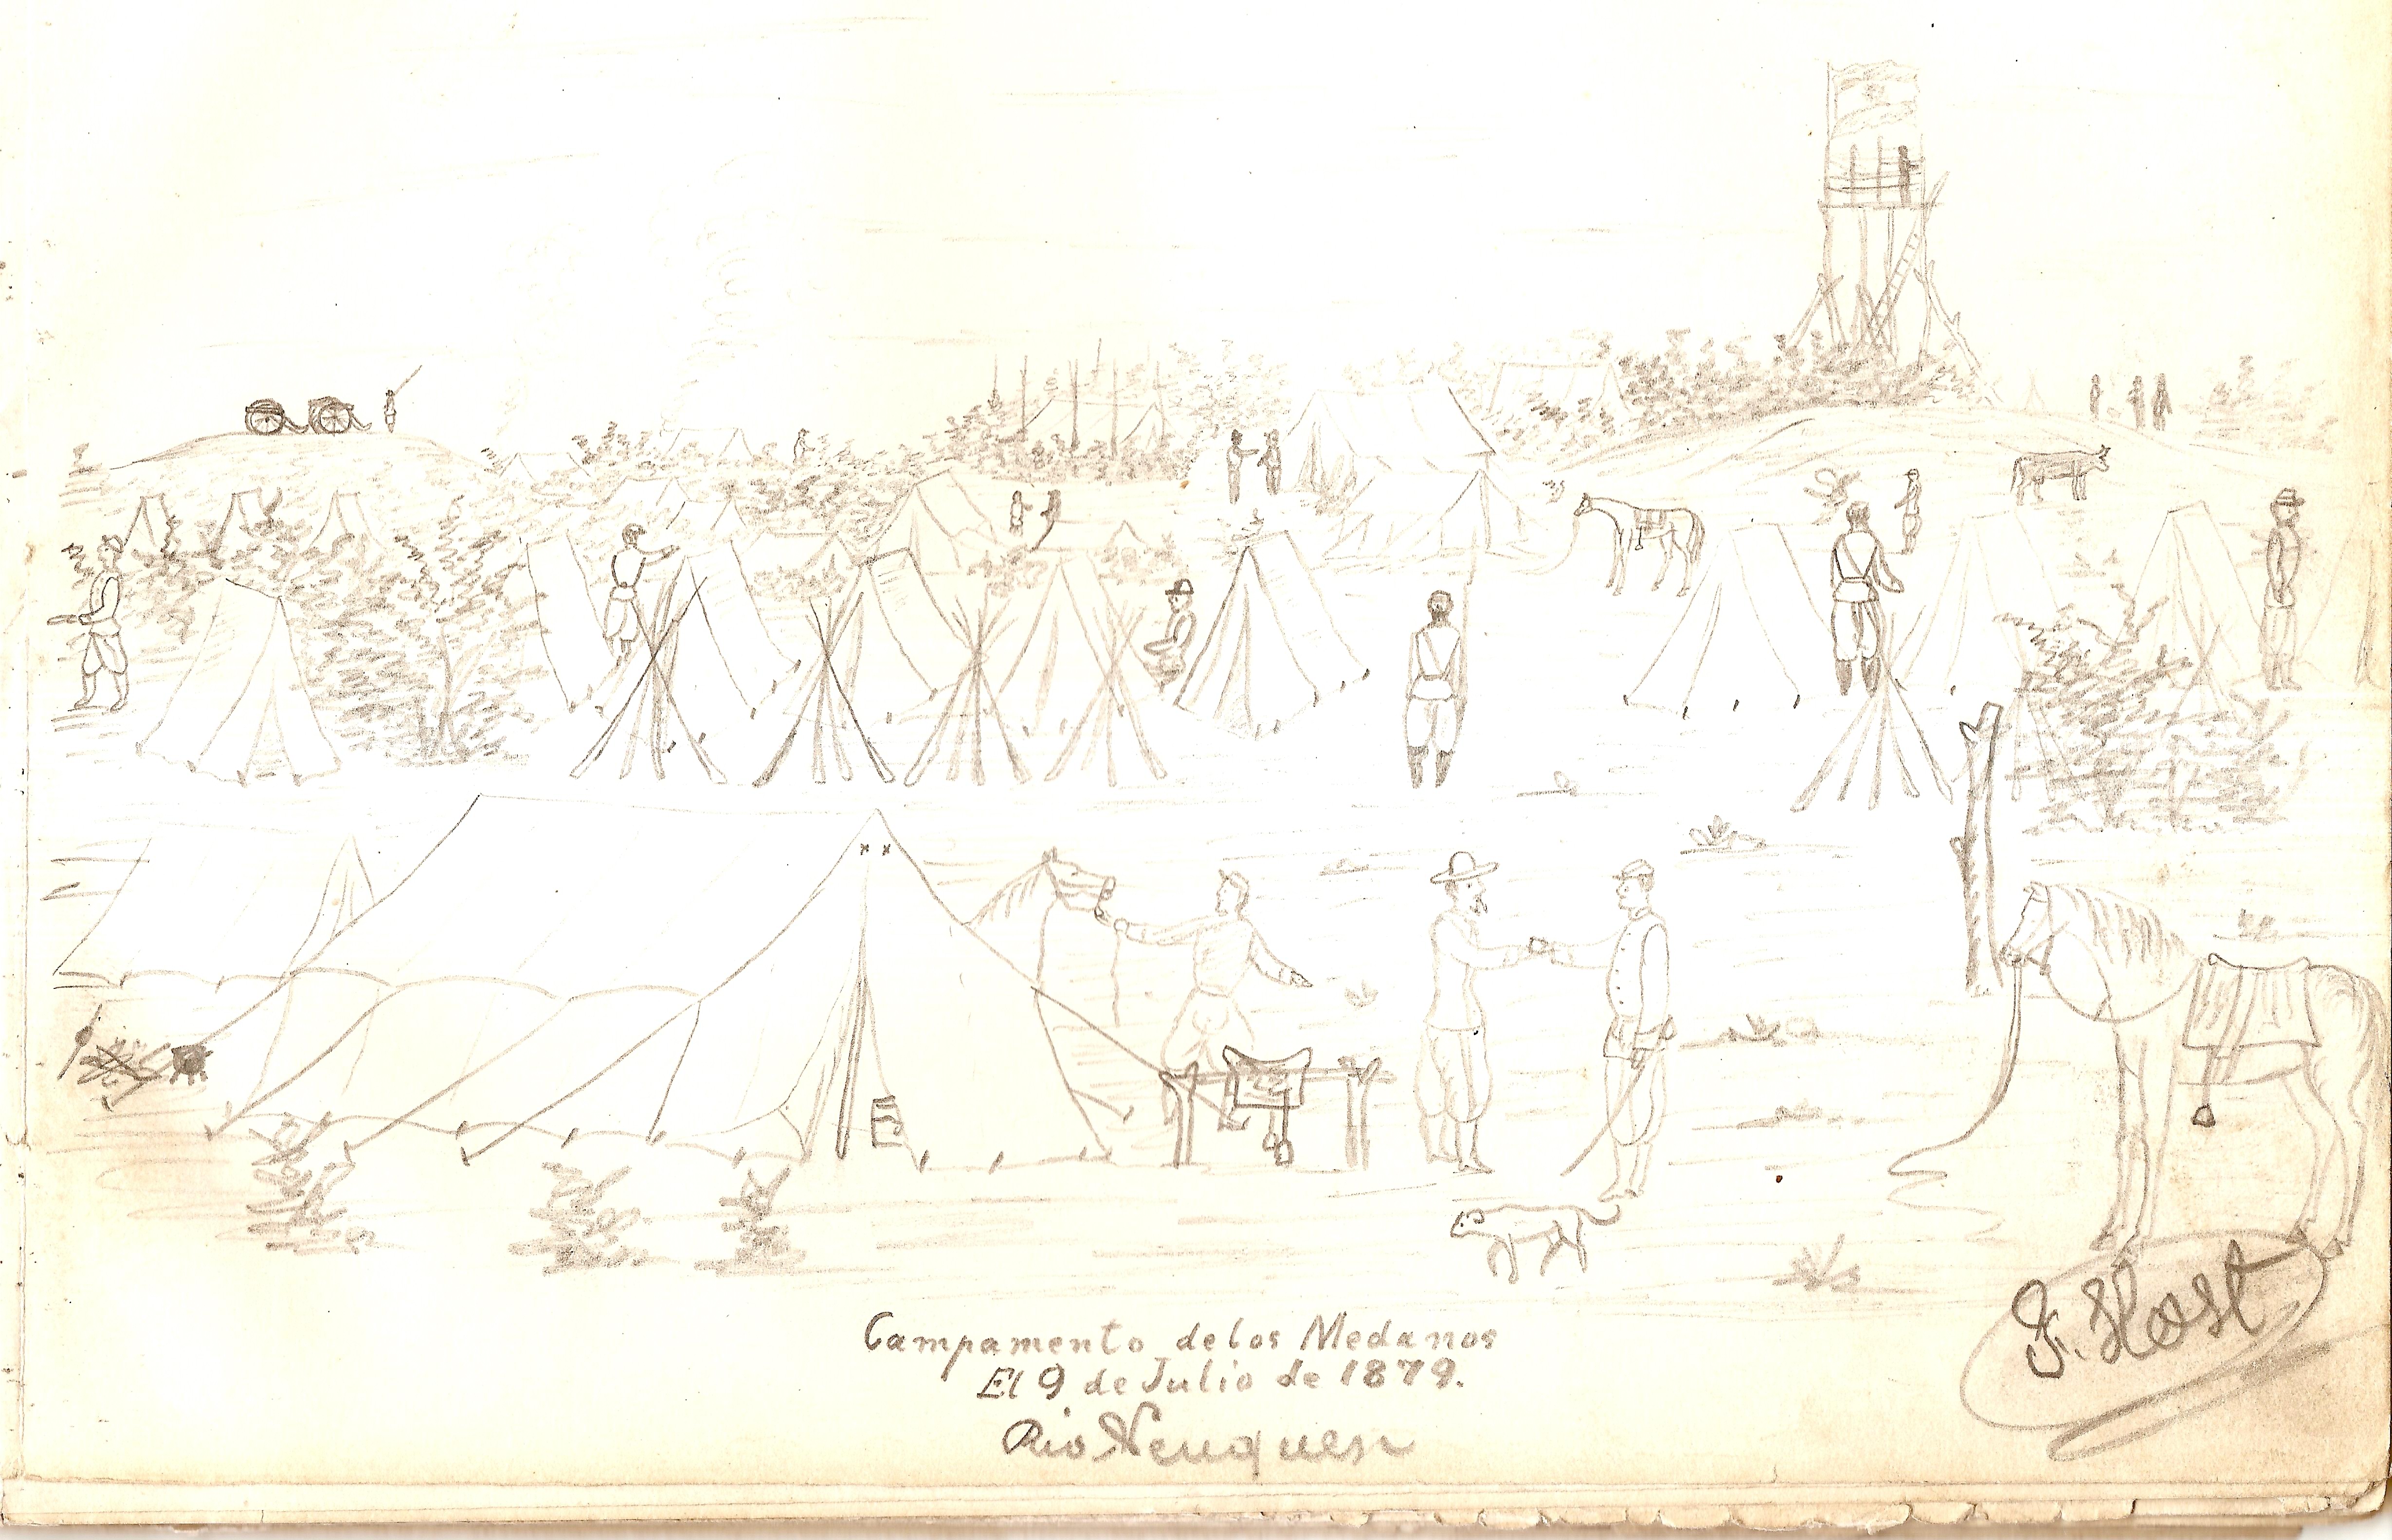 Campamento de los Medanos
El 9 de Julio de 1879.
Rio Neuquen
F. Host